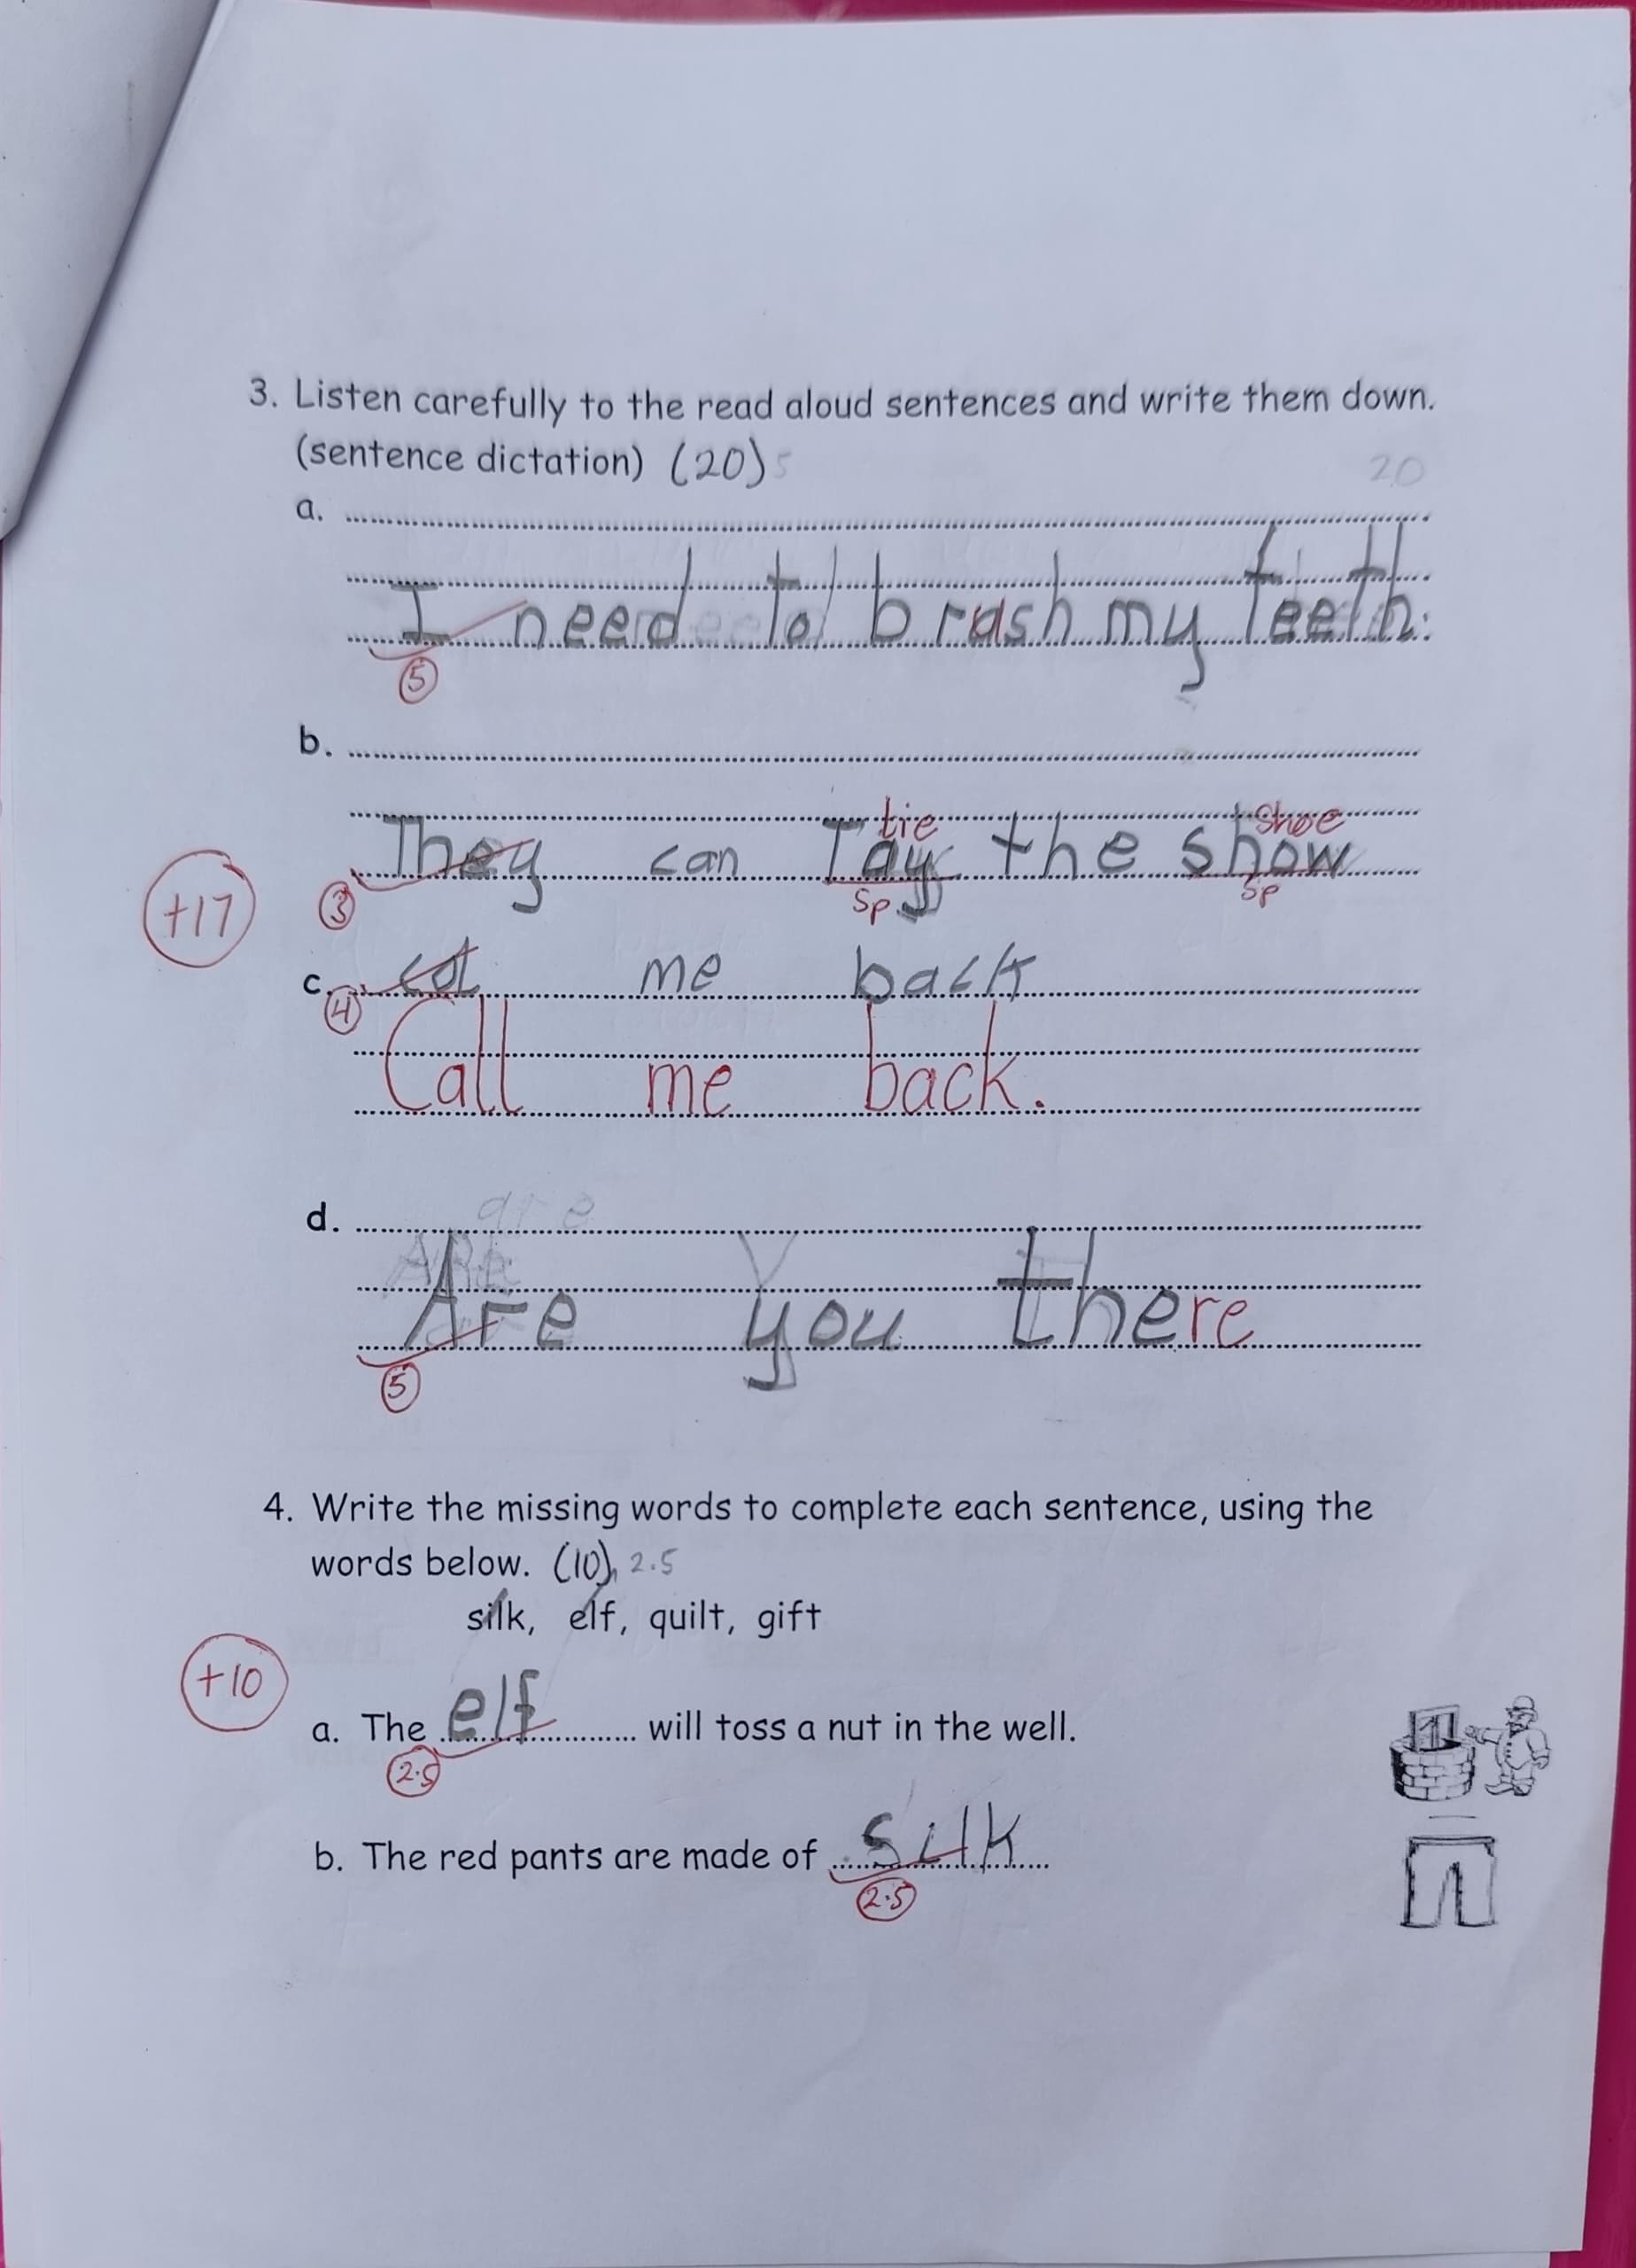 3. Listen carefully to the read aloud sentences and write them down.
(sentence dictation) (20) 5 20
a.
I need to brash my teeth.
5
b.
tie Shoe
They can Tay the show
Sp. Sp
3
+17
c. cal me back
4
Call me back.
d. are
ARe
Are you there
5
4. Write the missing words to complete each sentence, using the
words below. (10) 2.5
silk, elf, quilt, gift
+10
a. The elf will toss a nut in the well.
2.5
b. The red pants are made of silk
2.5